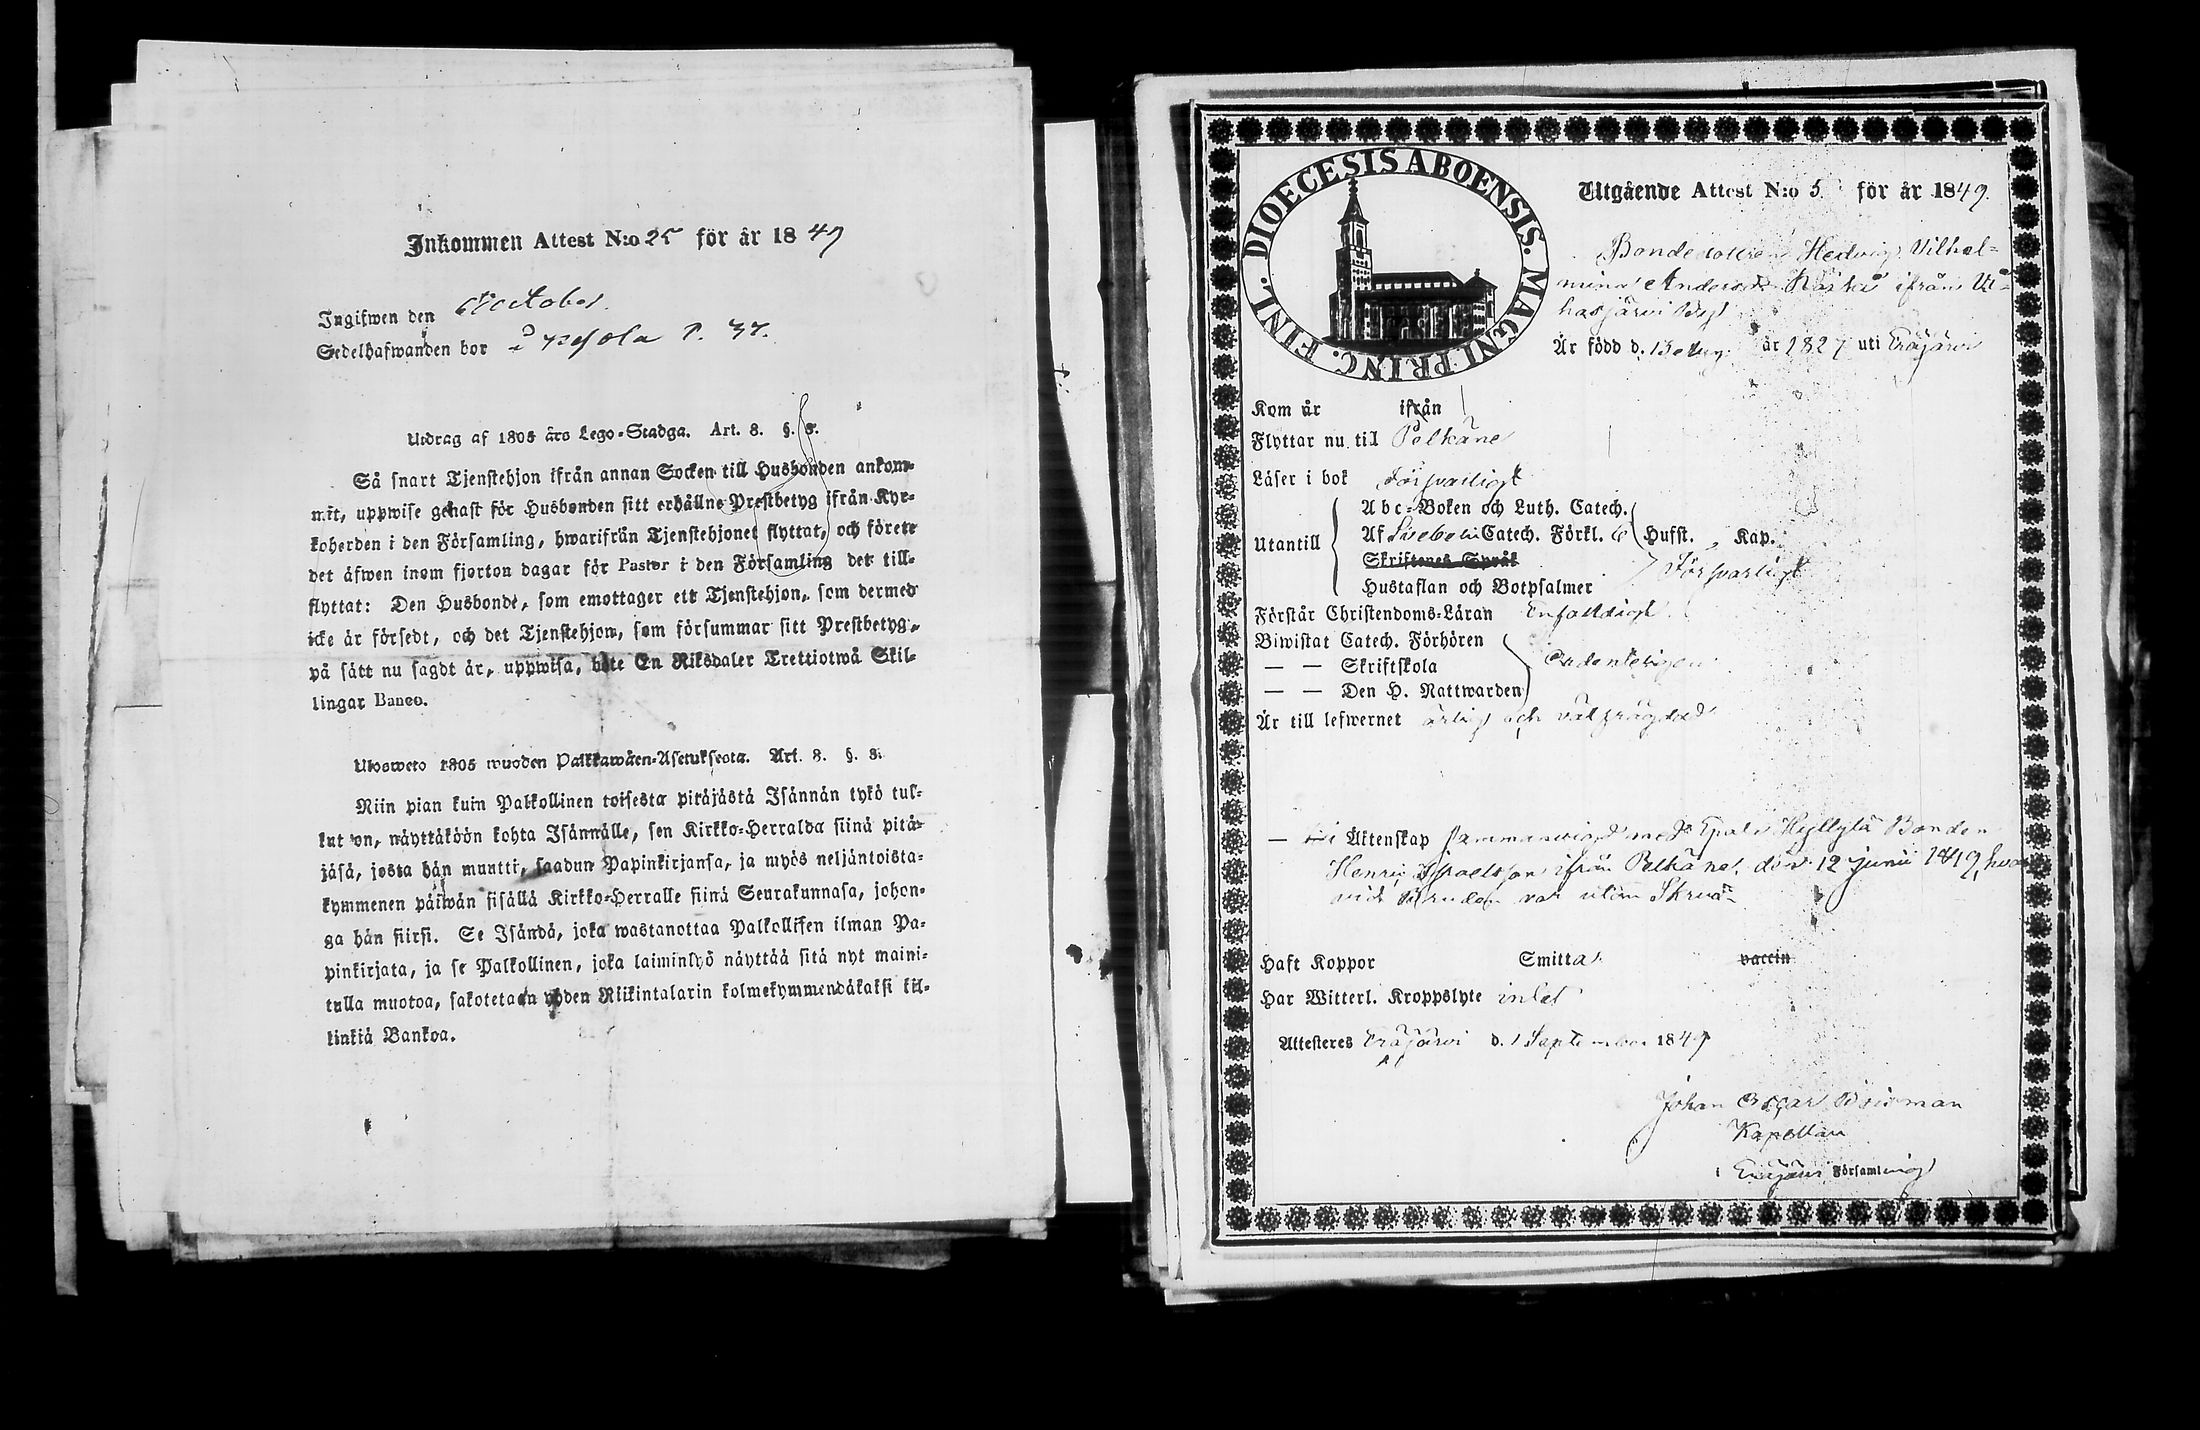 Inkommen Attest N:o 25 för år 1849
Ingifwen den October
Sedelhafwanden bor
Utdrag af 1805 års Lego-Stadga. Art. 8. §. 8.
Så snart Tjenstehjon ifrån annan Socken till Husbonden ankom-
mit, uppwise genast för Husbonden sitt erhållne Prestbetyg ifrån Kyr-
koherden i den Församling, hwarifrån Tjenstehjonet flyttat, och förete
det äfwen inom fjorton dagar för Pastor i den Församling det till-
flyttat: Den Husbonde, som emottager ett Tjenstehjon, som dermed
icke är försedt, och det Tjenstehjon, som försummar sitt Prestbetyg,
på sätt nu sagdt är, uppwisa, böte En Riksdaler Trettiotwå Skil-
lingar Banco.
Ulosweto 1805 wuoden Palkkawäen-Asetuksesta. Art. 8. §. 8.
Niin pian kuin Palkollinen toisesta pitäjästä Isännän tykö tul-
lut on, näyttäköön kohta Isännälle, sen Kirkko-Herralda siinä pitä-
jäsä, josta hän muutti, saadun Papinkirjansa, ja myös neljäntoista-
kymmenen päiwän sisällä Kirkko-Herralle siinä Seurakunnasa, johon-
ga hän siirsi. Se Isändä, joka wastanottaa Palkollisen ilman Pa-
pinkirjata, ja se Palkollinen, joka laiminlyö näyttää sitä nyt maini-
tulla muotoa, sakotetaan yhden Riikintalarin kolmekymmendäkaksi kil-
linkiä Bankoa.
DIOECESIS ABOENSIS. MAGNI PRINC. FINL.
Utgående Attest N:o 5 för år 1849.
Bondedottren Hedvig Vilhel-
mina Andersdr ifrån Ui-
hasjärvi By
Är född d. 13 Aug. år 1827 uti Eräjärvi
Kom år ifrån
Flyttar nu till Pelkäne
Läser i bok Försvarligt
Utantill
Abc-Boken och Luth. Catech.
Af Svebelii Catech. Förkl. 6 Hufst. Kap.
Skriftenes Språk
Försvarligt
Hustaflan och Botpsalmer
Förstår Christendoms-Läran Enfaldigt
Biwistat Catech. Förhören
— — Skriftskola Ordenteligen
— — Den H. Nattwarden
Är till lefwernet ärlig och välfrägdad
— i Äktenskap sammanvigd med Bonden
Henric Israelsson ifrån Pelkäne, den 12 Junii 1849, hvar
vid Bruden var utom
Haft Koppor Smitta vaccin
Har Witterl. Kroppslyte intet
Attesteres Eräjärvi d. 1 September 1849
Johan Oscar
Kapellan
i Eräjärvi Församling